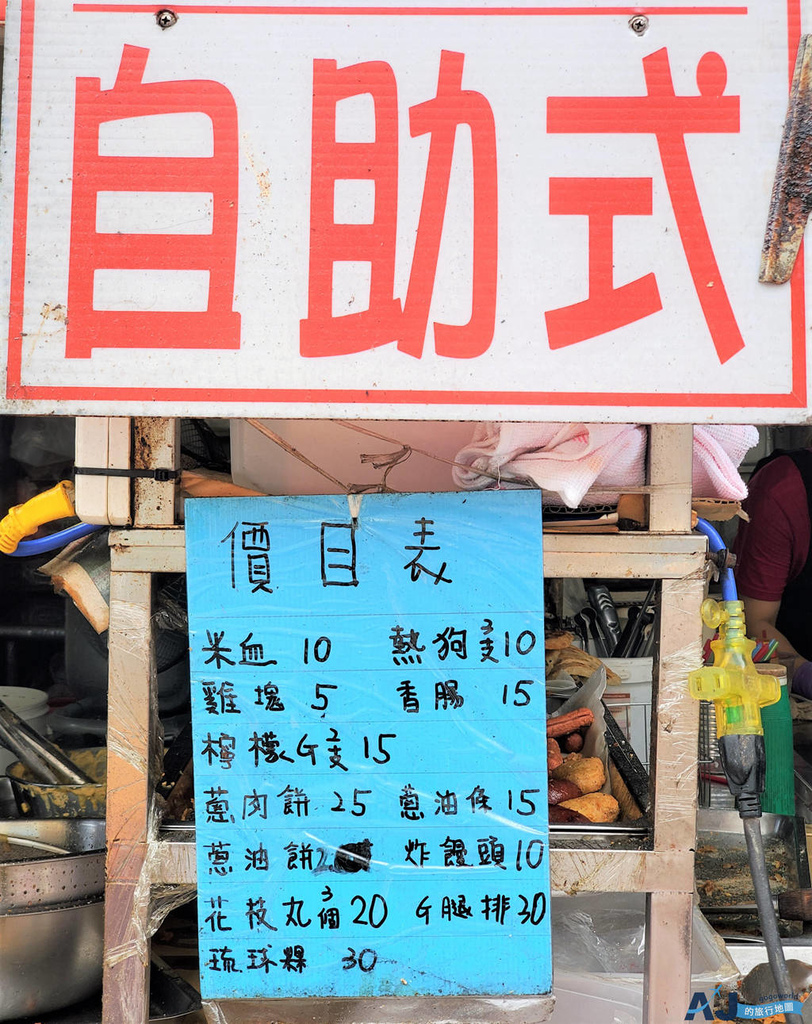 自助式
價目表
米血 10 熱狗3支10
雞塊 5 香腸 15
檸檬G2支 15
蔥肉餅 25 蔥油條 15
蔥油餅2 炸饅頭10
花枝丸3個20 G腿排30
琉球粿 30
AJ
的旅行地圖